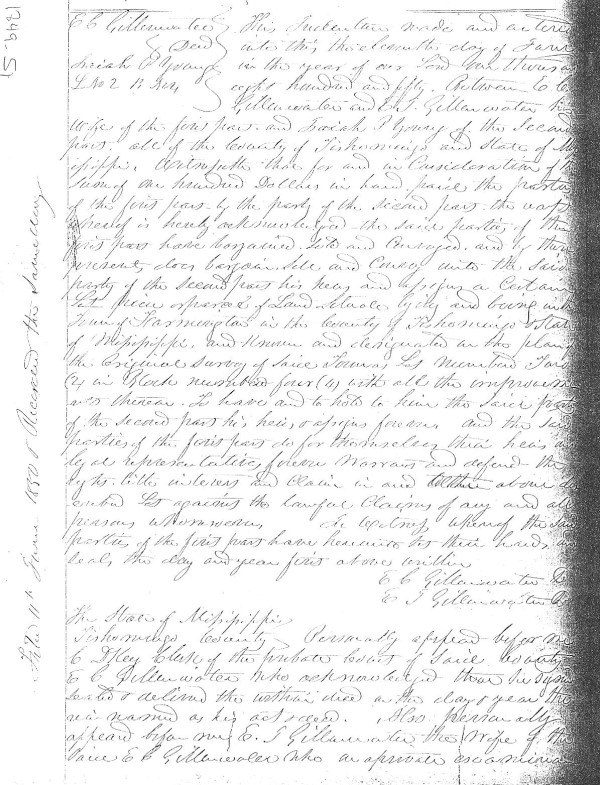 E C Gillenwater This Indenture made and entered
& Deed into this the eleventh day of June
Isaiah P Young in the year of our Lord one thousand
L No 2 B No 4 eight hundred and fifty. Between E C
Gillenwater and E. J. Gillenwater his
Wife of the first part and Isaiah P Young of the Second
part. all of the County of Tishomingo and State of
Missippi. Witnesseth that for and in Consideration of
Sum of one hundred Dollars in hand paid the parties
of the first part by the party of the second part the
whereof is hereby acknowledged the said parties of the
first part have bargained Sold and Conveyed and by these
presents does bargain Sell and Convey unto the Said
party of the Second part his heirs and assigns a Certain
Lot piece or parcel of Land Situate lying and being in
Town of Farmington in the County of Tishomingo & State
of Missippi. and Known and designated in the plan
the Original Survey of Said Town as Lot Number Two
(2) in Block number four (4) with all the
thereon. To have and to hold to him the Said party
of the second part his heirs & assigns forever and the said
parties of the first part do for themselves their heirs
legal representatives forever Warrant and defend the
right title interest and Claim in and to the above
Lot against the lawful Claims of any and all
persons whomsoever. In Witness whereof the said
parties of the first part have hereunto set their hands
Seals the day and year first above written
E C Gillenwater
E J Gillenwater
The State of Missippi
Tishomingo County Personally appeard before me
Clerk of the probate Court of Said County
E C Gillenwater who acknowledged that he signed
Sealed & delivered the within deed on the day & year
named as his act & deed. Also personally
appeared before me E. J Gillenwater the Wife of the
Said E C Gillenwater who on a private
Filed 11th June 1850 & Recorded the Same day